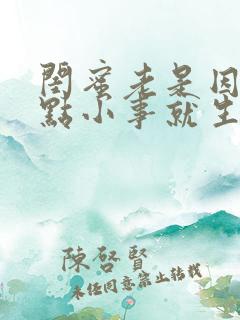 閨蜜老是因
點小事就生
陳啓賢
未经同意禁止转载